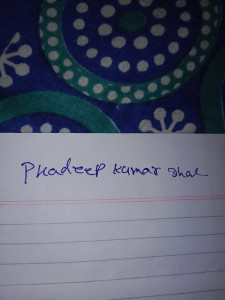 Pradeep Kumar Dhal